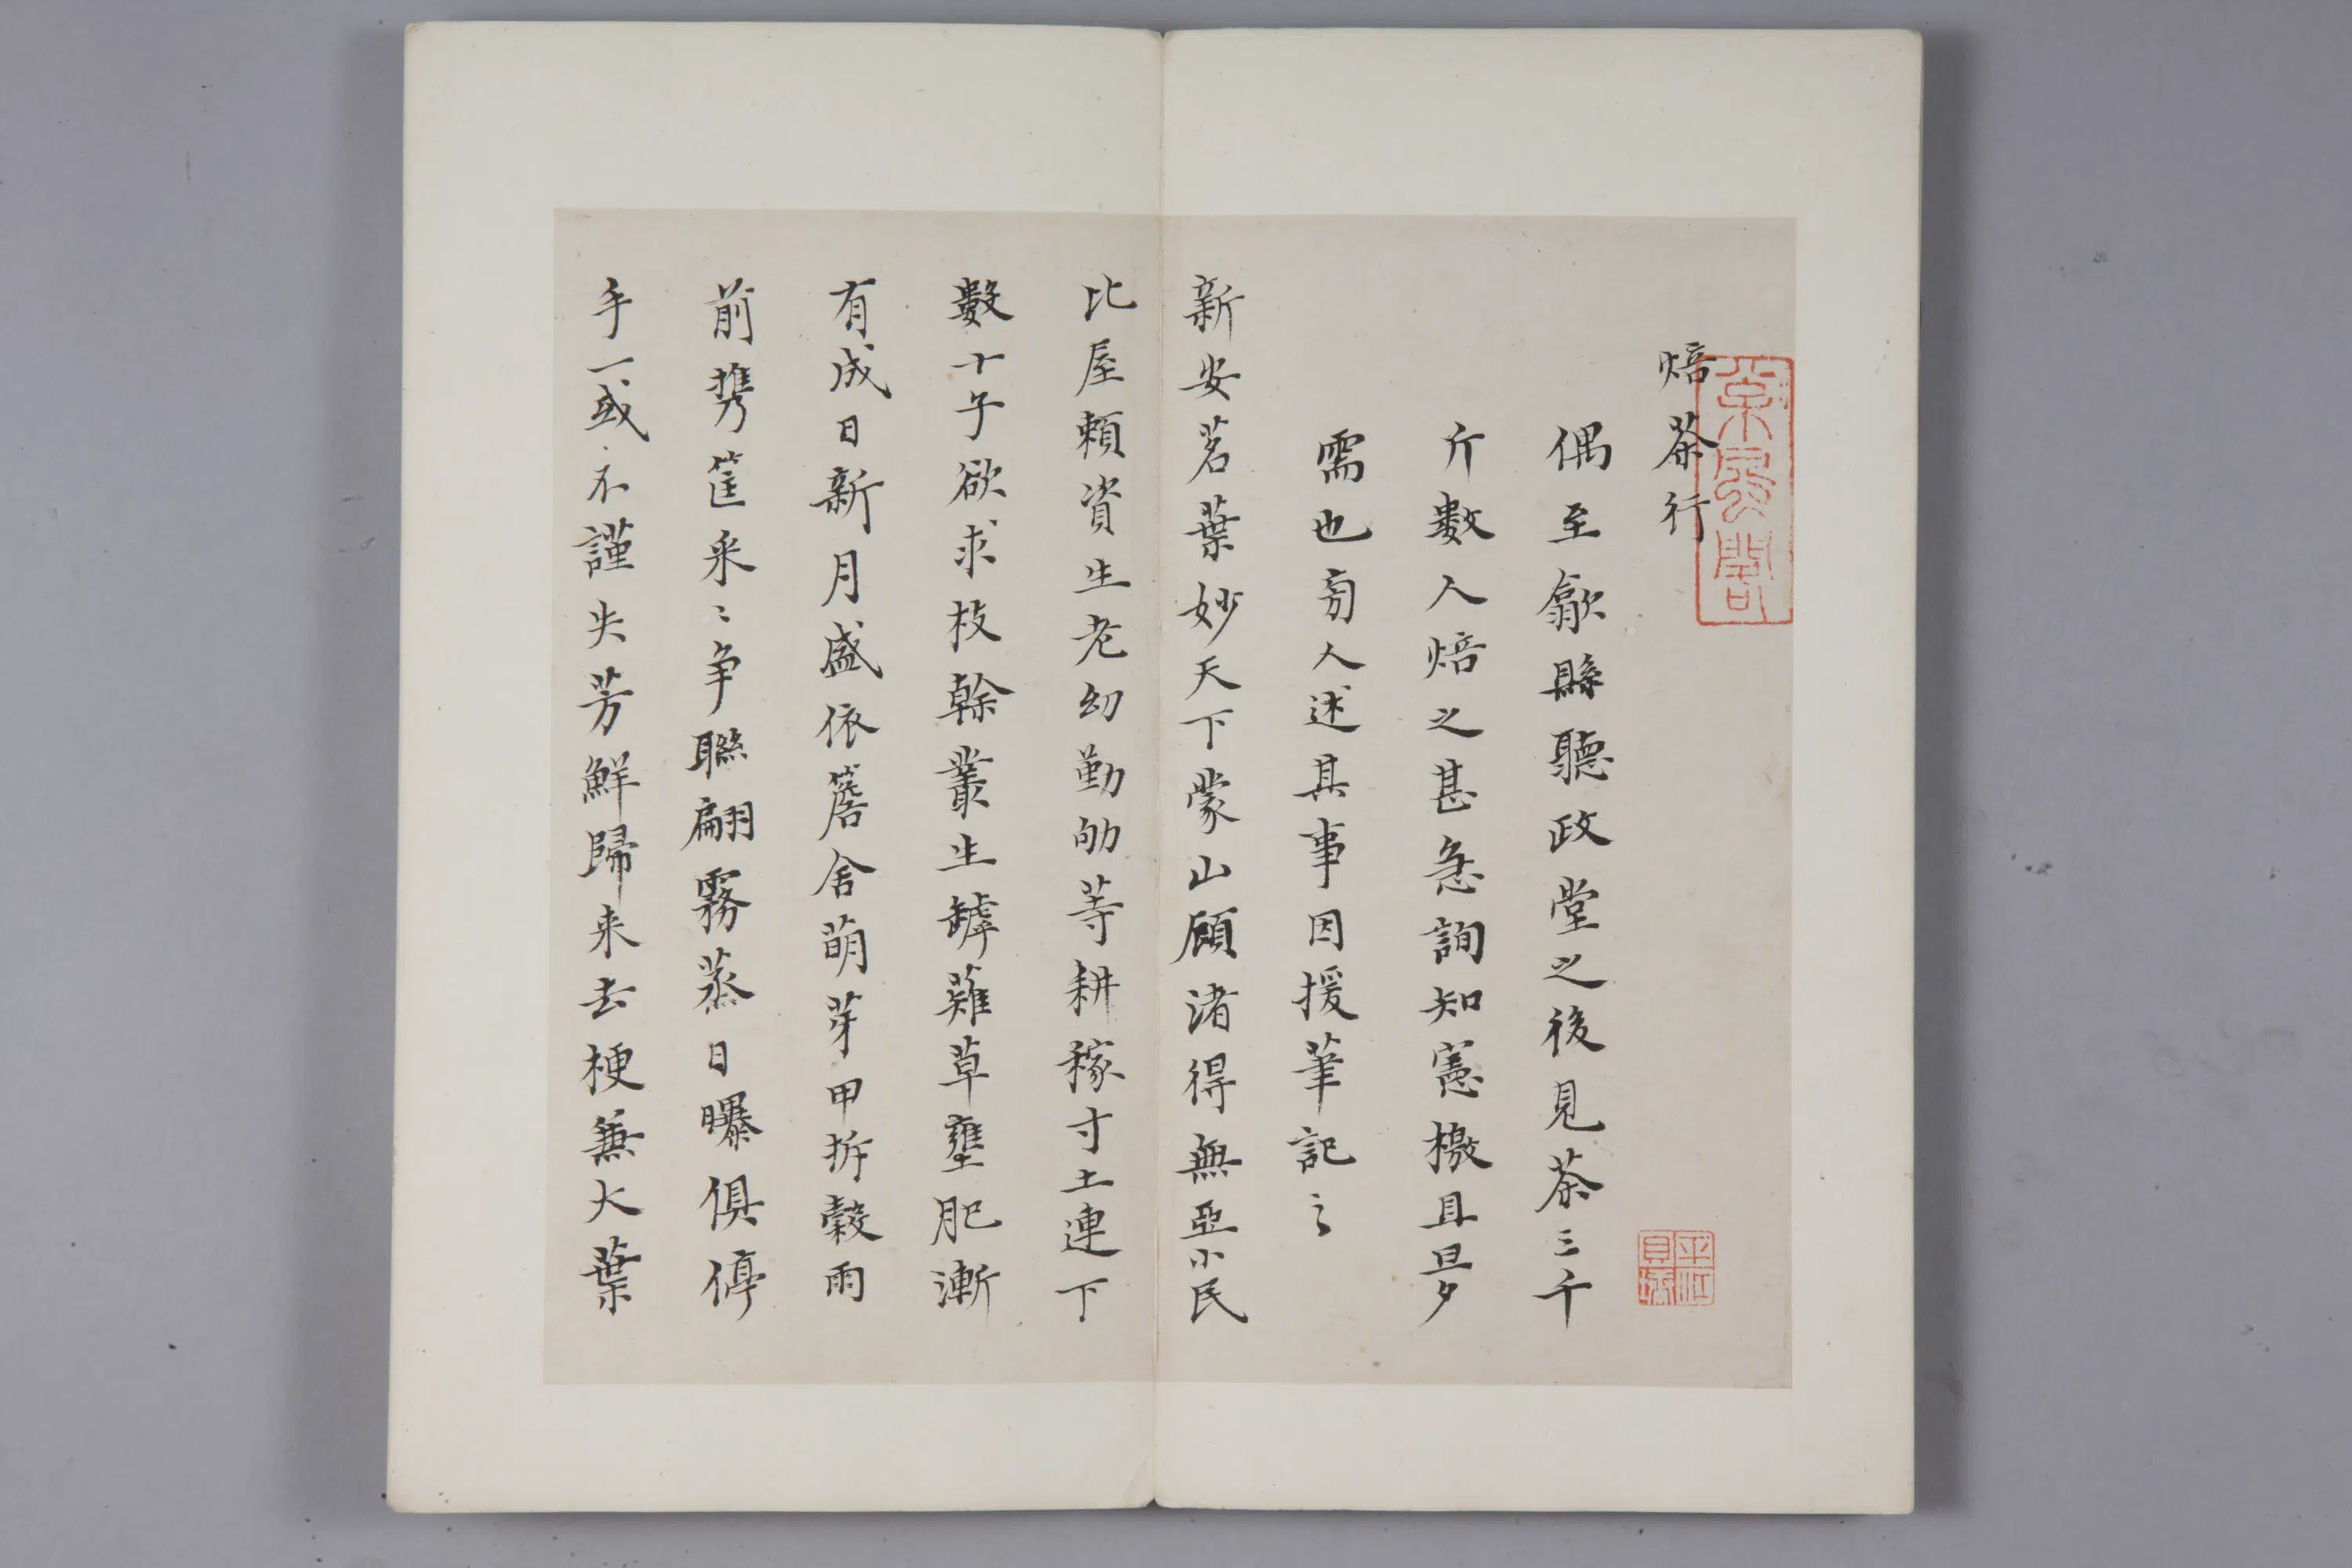 焙茶行
偶至歙縣聽政堂之後見茶三千
斤數人焙之甚急詢知憲檄且夛
需也向人述其事因援筆記之
新安茗葉妙天下蒙山顧渚得無亞小民
比屋頼資生老幼勤劬等耕稼寸土連下
數十子欲求枝榦叢生罅薙草壅肥漸
有成日新月盛依簷舍萌芽甲拆穀雨
前携筐采〻争聯翩霧蒸日曝俱停
手一或不謹失芳鮮歸来去梗兼大葉